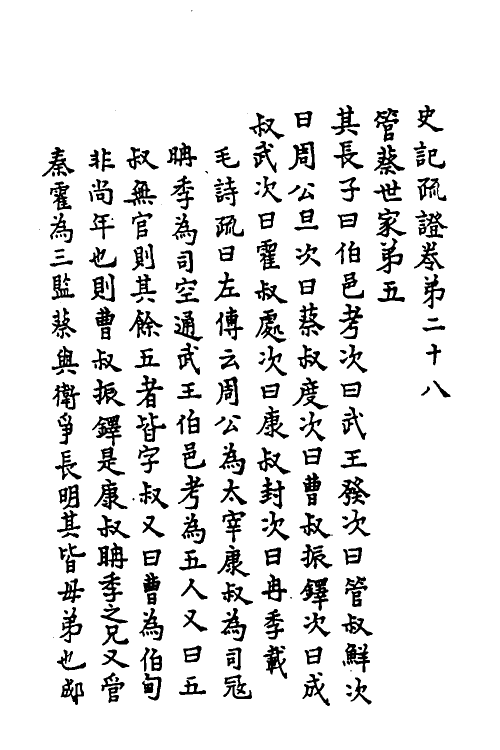 史記疏證卷第二十八
管蔡世家第五
其長子曰伯邑考次曰武王發次曰管叔鮮次
曰周公旦次曰蔡叔度次曰曹叔振鐸次曰成
叔武次曰霍叔處次曰康叔封次曰冉季載
毛詩疏曰左傳云周公為太宰康叔為司冦
聃季為司空通武王伯邑考為五人又曰五
叔無官則其餘五者皆字叔又曰曹為伯甸
非尚年也則曹叔振鐸是康叔聃季之兄又管
秦霍為三監蔡與衛爭長明其皆母弟也郕